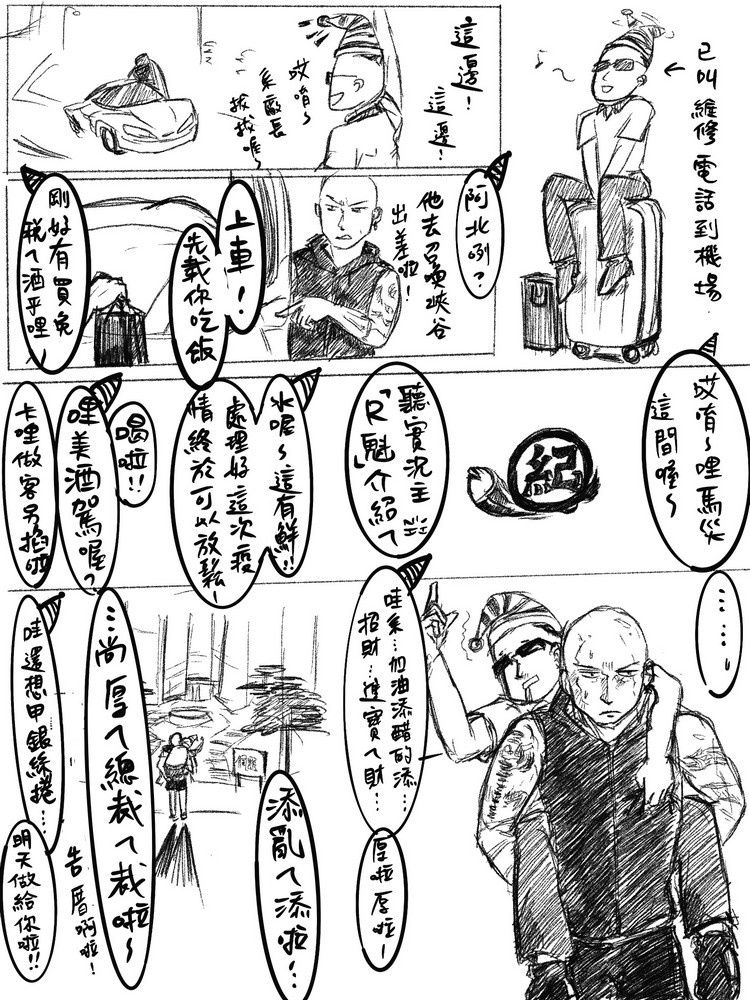 已叫維修電話到機場
這邊!
這邊!
哎唷~
系廠長
拔拔喔~
阿北咧?
他去召喚峽谷
出差啦!
上車!
先載你吃飯
剛好有買免
稅ㄟ酒乎哩~
哎唷~哩馬災
這間喔~
聽實況主
「R魅」介紹ㄟ
紀
水喔~這有鮮!!
處理好這次疫
情終於可以放鬆!
喝啦!!
哩美酒加駕喔?
卡哩做客另掐啦
……
哇系…加油添醋的添…
招財…進寶ㄟ財…
厚啦厚啦!
添亂ㄟ添啦!…
…尚厚ㄟ總裁ㄟ裁啦~
哇還想甲銀絲捲…
告厝啊啦!
明天做給你啦!!